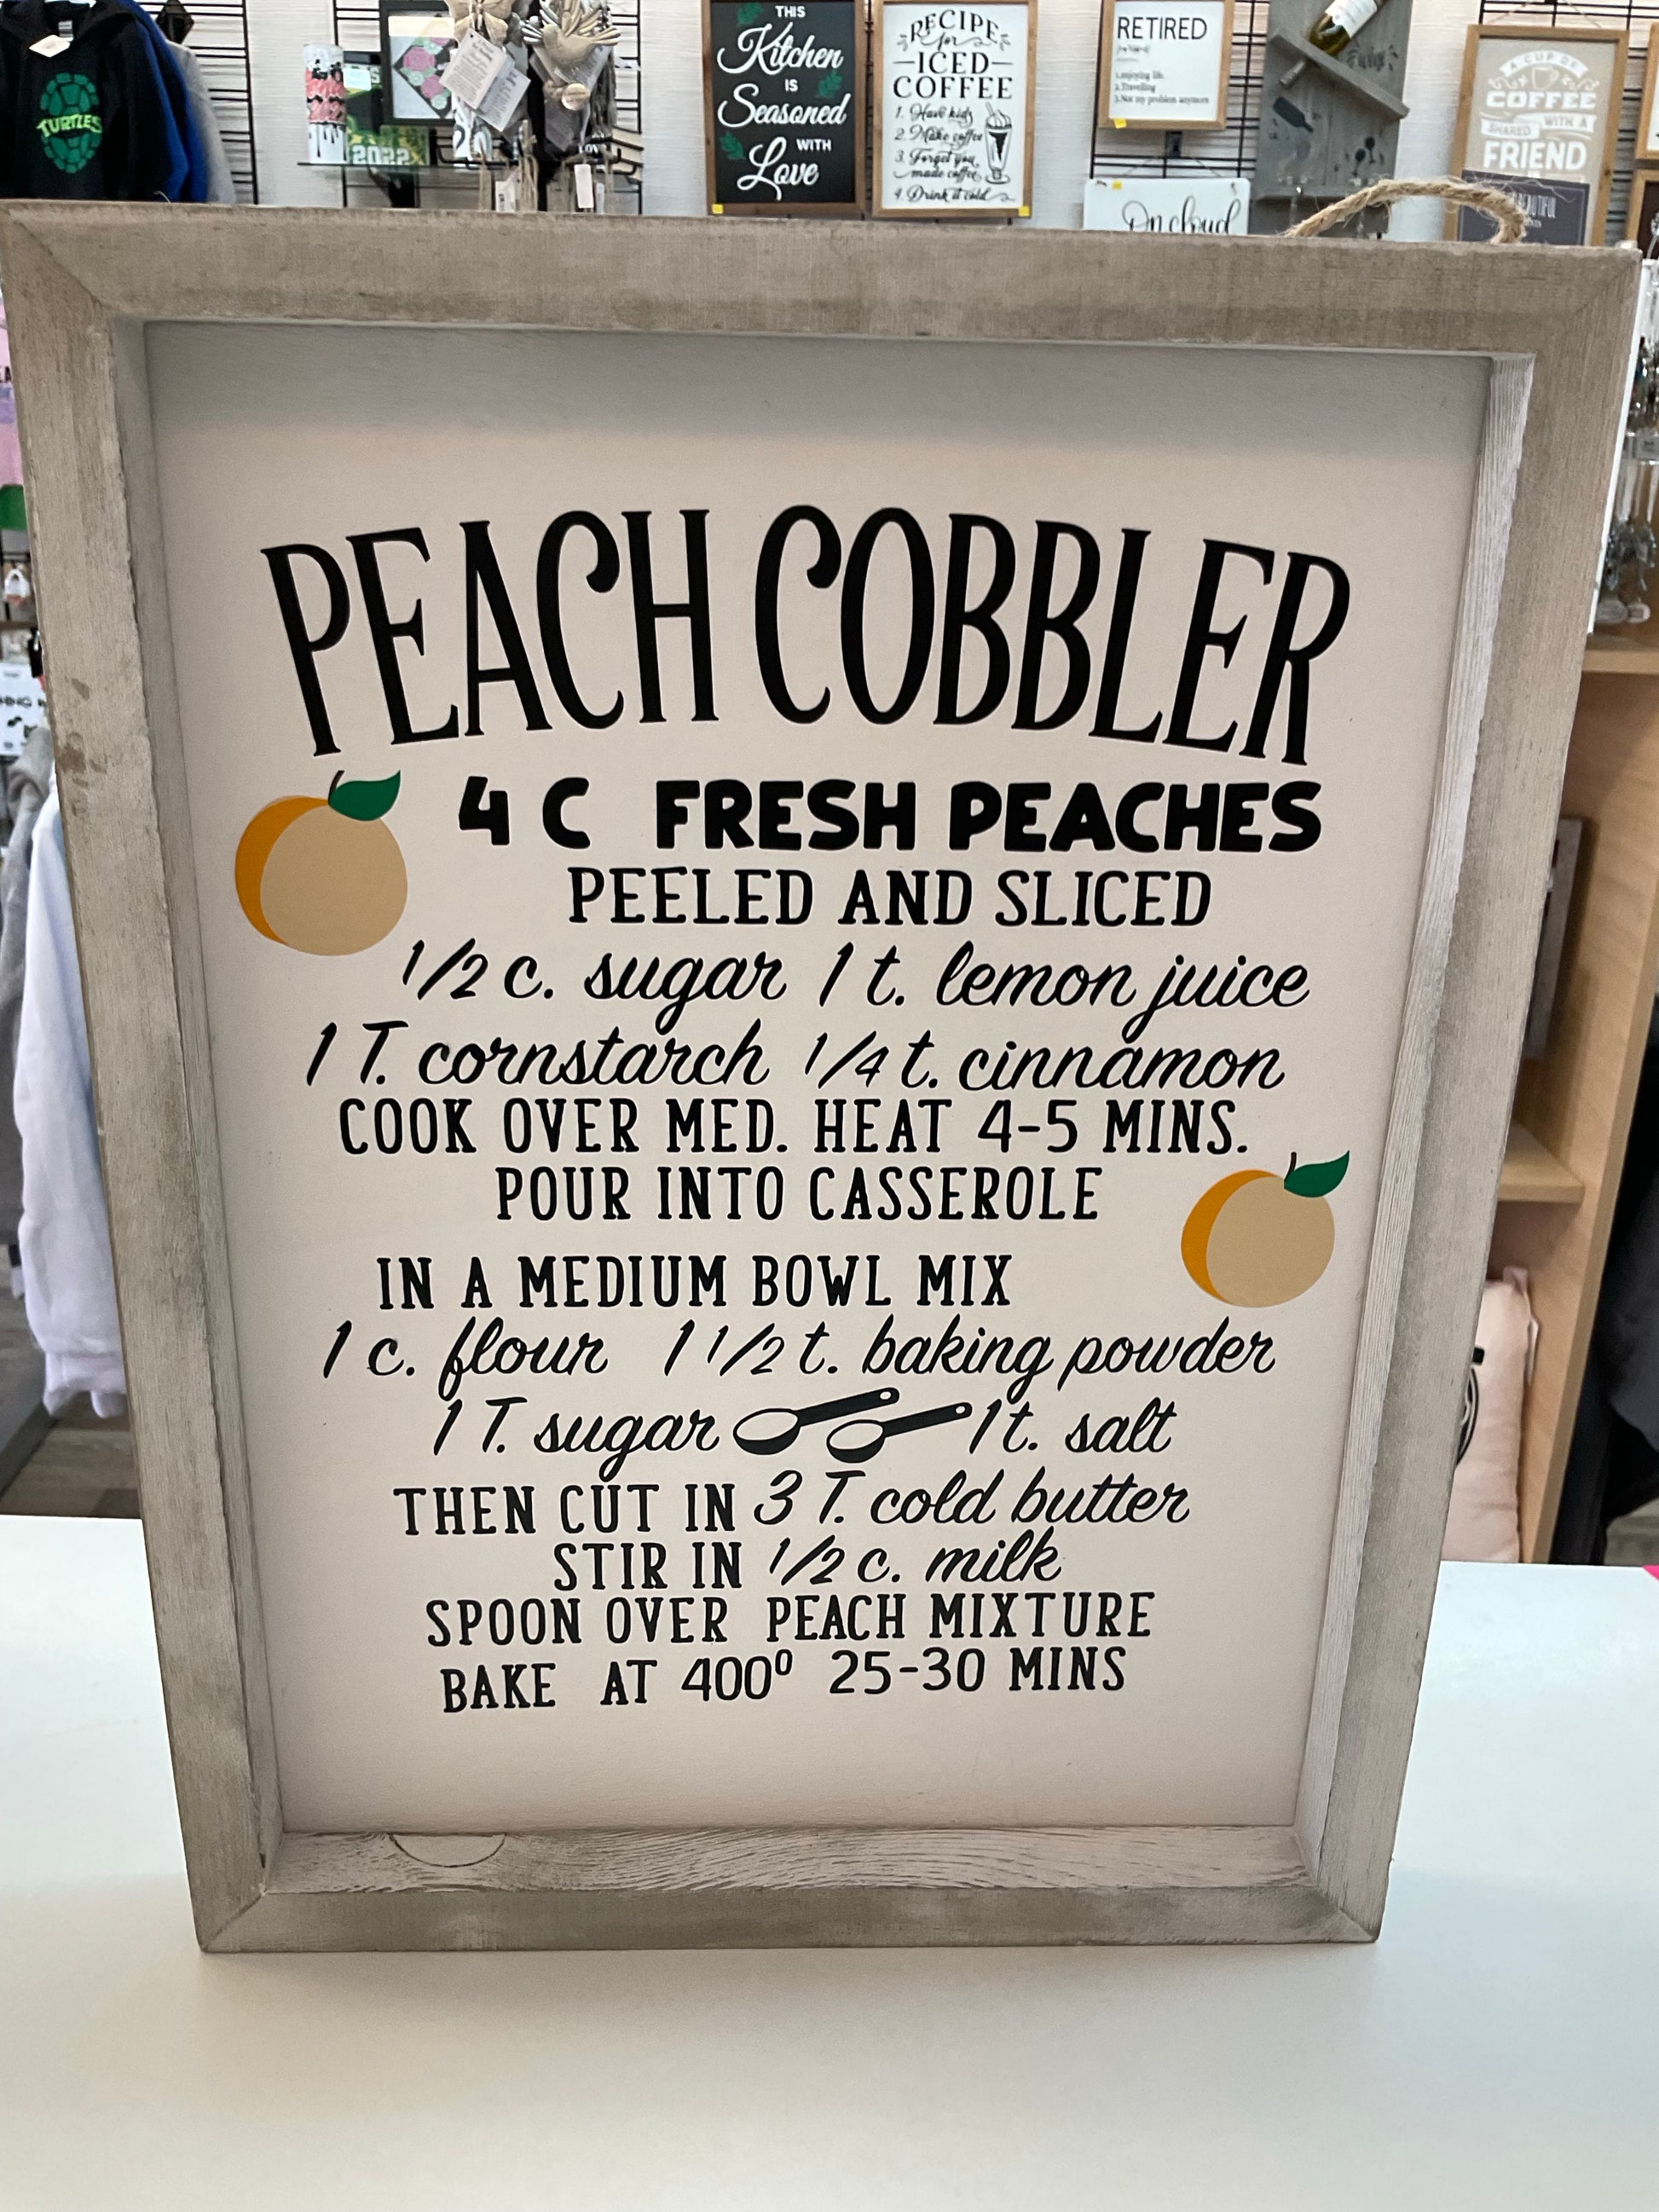 TURTLES
2022
THIS
Kitchen
IS
Seasoned
WITH
Love
RECIPE
for
ICED
COFFEE
1. Have kids
2. Make coffee
3. Forget you
made coffee
4. Drink it cold
RETIRED
1.enjoying life.
2.Travelling
3.Not my problem anymore
On cloud
A CUP OF
COFFEE
SHARED WITH A
FRIEND
PEACH COBBLER
4 C FRESH PEACHES
PEELED AND SLICED
1/2 c. sugar 1 t. lemon juice
1 T. cornstarch 1/4 t. cinnamon
COOK OVER MED. HEAT 4-5 MINS.
POUR INTO CASSEROLE
IN A MEDIUM BOWL MIX
1 c. flour 1 1/2 t. baking powder
1 T. sugar 1 t. salt
THEN CUT IN 3 T. cold butter
STIR IN 1/2 c. milk
SPOON OVER PEACH MIXTURE
BAKE AT 400⁰ 25-30 MINS